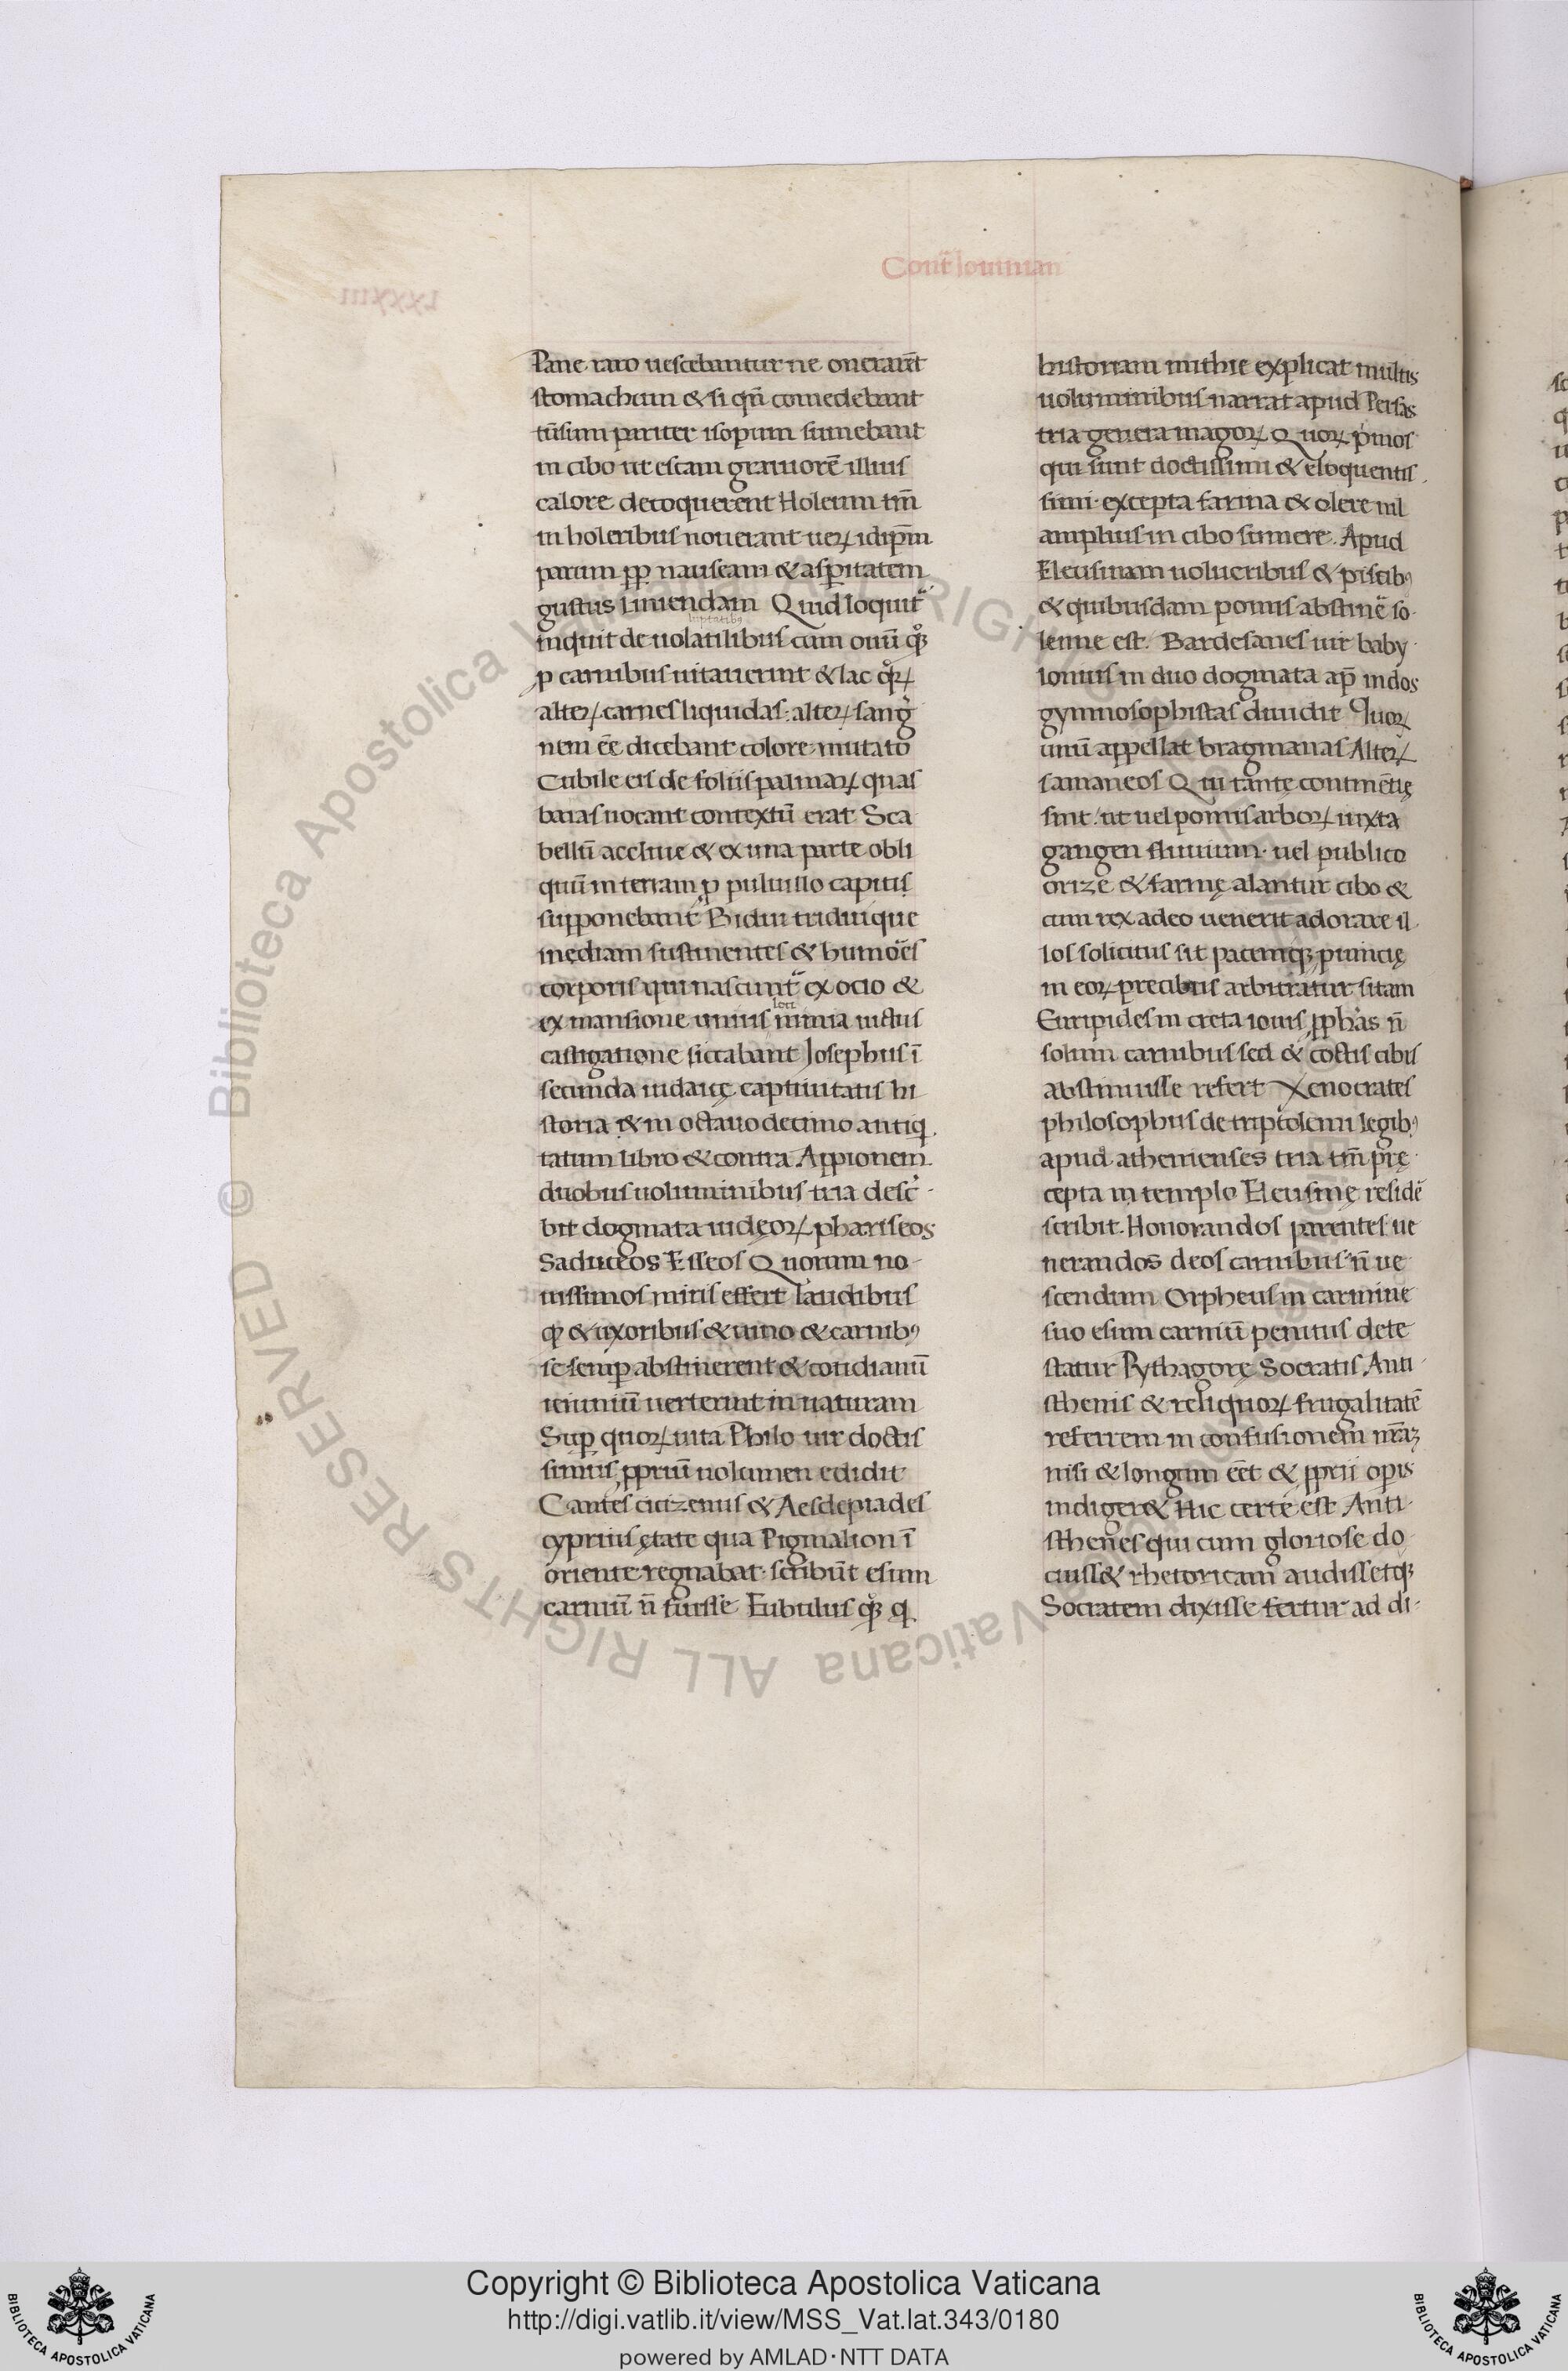 Cont̄ Iouinian
Pane raro uescebantur ne onerarēt
stomachum & si qn̄ comedebant
tūsum pariter isopum sumebant
in cibo ut escam grauiorē illius
calore decoquerent Holeum tm̄
in holeribus nouerant ueꝝ idip̄m
parum ꝓp̄ nauseam & asꝑitatem
gustus liniendam Quid loquit̄
inquit de uolatilibus cum ouū qͦꝫ
ꝓ carnibus uitauerint & lac qͦꝝ
alteꝝ carnes liquidas: alteꝝ sangͥ
nem ēē dicebant colore mutato
Cubile eis de foliis palmaꝝ quas
baias uocant contextū erat Sca
bellū accliue & ex una parte obli
quū in terram ꝓ puluillo capitis
supponebant Bidui triduique
inediam sustinentes & humoēs
corporis qui nascunt̄ ex ocio &
ex mansione unius loci nimia uictus
castigatione siccabant Iosephus ī
secunda iudaicę captiuitatis hi
storia & in octauo decimo antiqͥ
tatum libro & contra Appionem
duobus uoluminibus tria descͥ-
bit dogmata iudęoꝝ phariseos
Saduceos Esseos Quorum no-
uissimos miris effert laudibus
ꝙ & uxoribus & uino & carnibꝰ
se semꝑ abstinerent & cotidianū
ieiuniū uerterint in naturam
Suꝑ quoꝝ uita Philo uir doctis
simus ꝓpriū uolumen edidit
Cantes cicizenus & Aesclepiades
cyprius ętate qua Pigmalion ī
oriente regnabat scribūt esum
carniū n̄ fuisse Eubulus qͦꝫ qͥ
historiam mithre explicat multis
uoluminibus narrat apud Persas
tria genera magoꝝ Quoꝝ pͥmos
qui sunt doctissimi & eloquentis
simi excepta farina & olere nil
amplius in cibo sumere. Apud
Eleusinam uolucribus & piscibꝰ
& quibusdam pomis abstinē so-
lenne est. Bardesanes uir baby-
lonius in duo dogmata ap̄ indos
gymnosophistas diuidit Quoꝝ
unū appellat bragmanas Alteꝝ
samaneos Qui tantę continētię
sint: ut uel pomis arboꝝ iuxta
gangen fluuium uel publico
orizę & farinę alantur cibo &
cum rex adeo uenerit adorare il-
los solicitus sit pacemqꝫ ꝓuincię
in eoꝝ precibus arbitratur sitam
Euripides in creta iouis ꝓphas n̄
solum carnibus sed & coctis cibis
abstinuisse refert Xenocrates
philosophus de triptolemi legibꝰ
apud athenienses tria tm̄ prę-
cepta in templo Eleusinę residē
scribit. Honorandos parentes ue
nerandos deos carnibus n̄ ue
scendum Orpheus in carmine
suo esum carniū penitus dete
statur Pythagorę Socratis Anti-
sthenis & reliquoꝝ frugalitatē
referrem in confusionem nr̄aꝫ
nisi & longum eēt & ꝓprii oꝑis
indiger& Hic certe est Anti-
sthenes qui cum gloriose do-
cuiss& rhetoricam audissetqꝫ
Socratem dixisse fertur ad di-
uoluptatibꝰ
LXXXIII
© Biblioteca Apostolica Vaticana ALL RIGHTS RESERVED
Copyright © Biblioteca Apostolica Vaticana
http://digi.vatlib.it/view/MSS_Vat.lat.343/0180
powered by AMLAD·NTT DATA
BIBLIOTECA APOSTOLICA VATICANA
BIBLIOTECA APOSTOLICA VATICANA